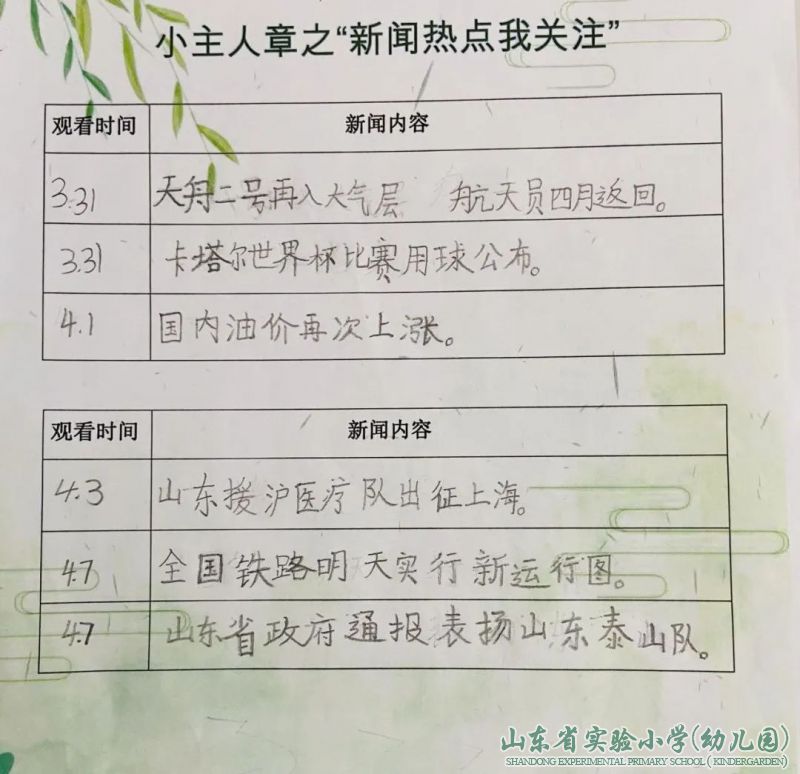 小主人章之“新闻热点我关注”
观看时间 新闻内容
3.31 天舟二号再入大气层 航天员四月返回。
3.31 卡塔尔世界杯比赛用球公布。
4.1 国内油价再次上涨。
观看时间 新闻内容
4.3 山东援沪医疗队出征上海。
4.7 全国铁路明天实行新运行图。
4.7 山东省政府通报表扬山东泰山队。
山东省实验小学(幼儿园)
SHANDONG EXPERIMENTAL PRIMARY SCHOOL ( KINDERGARDEN)